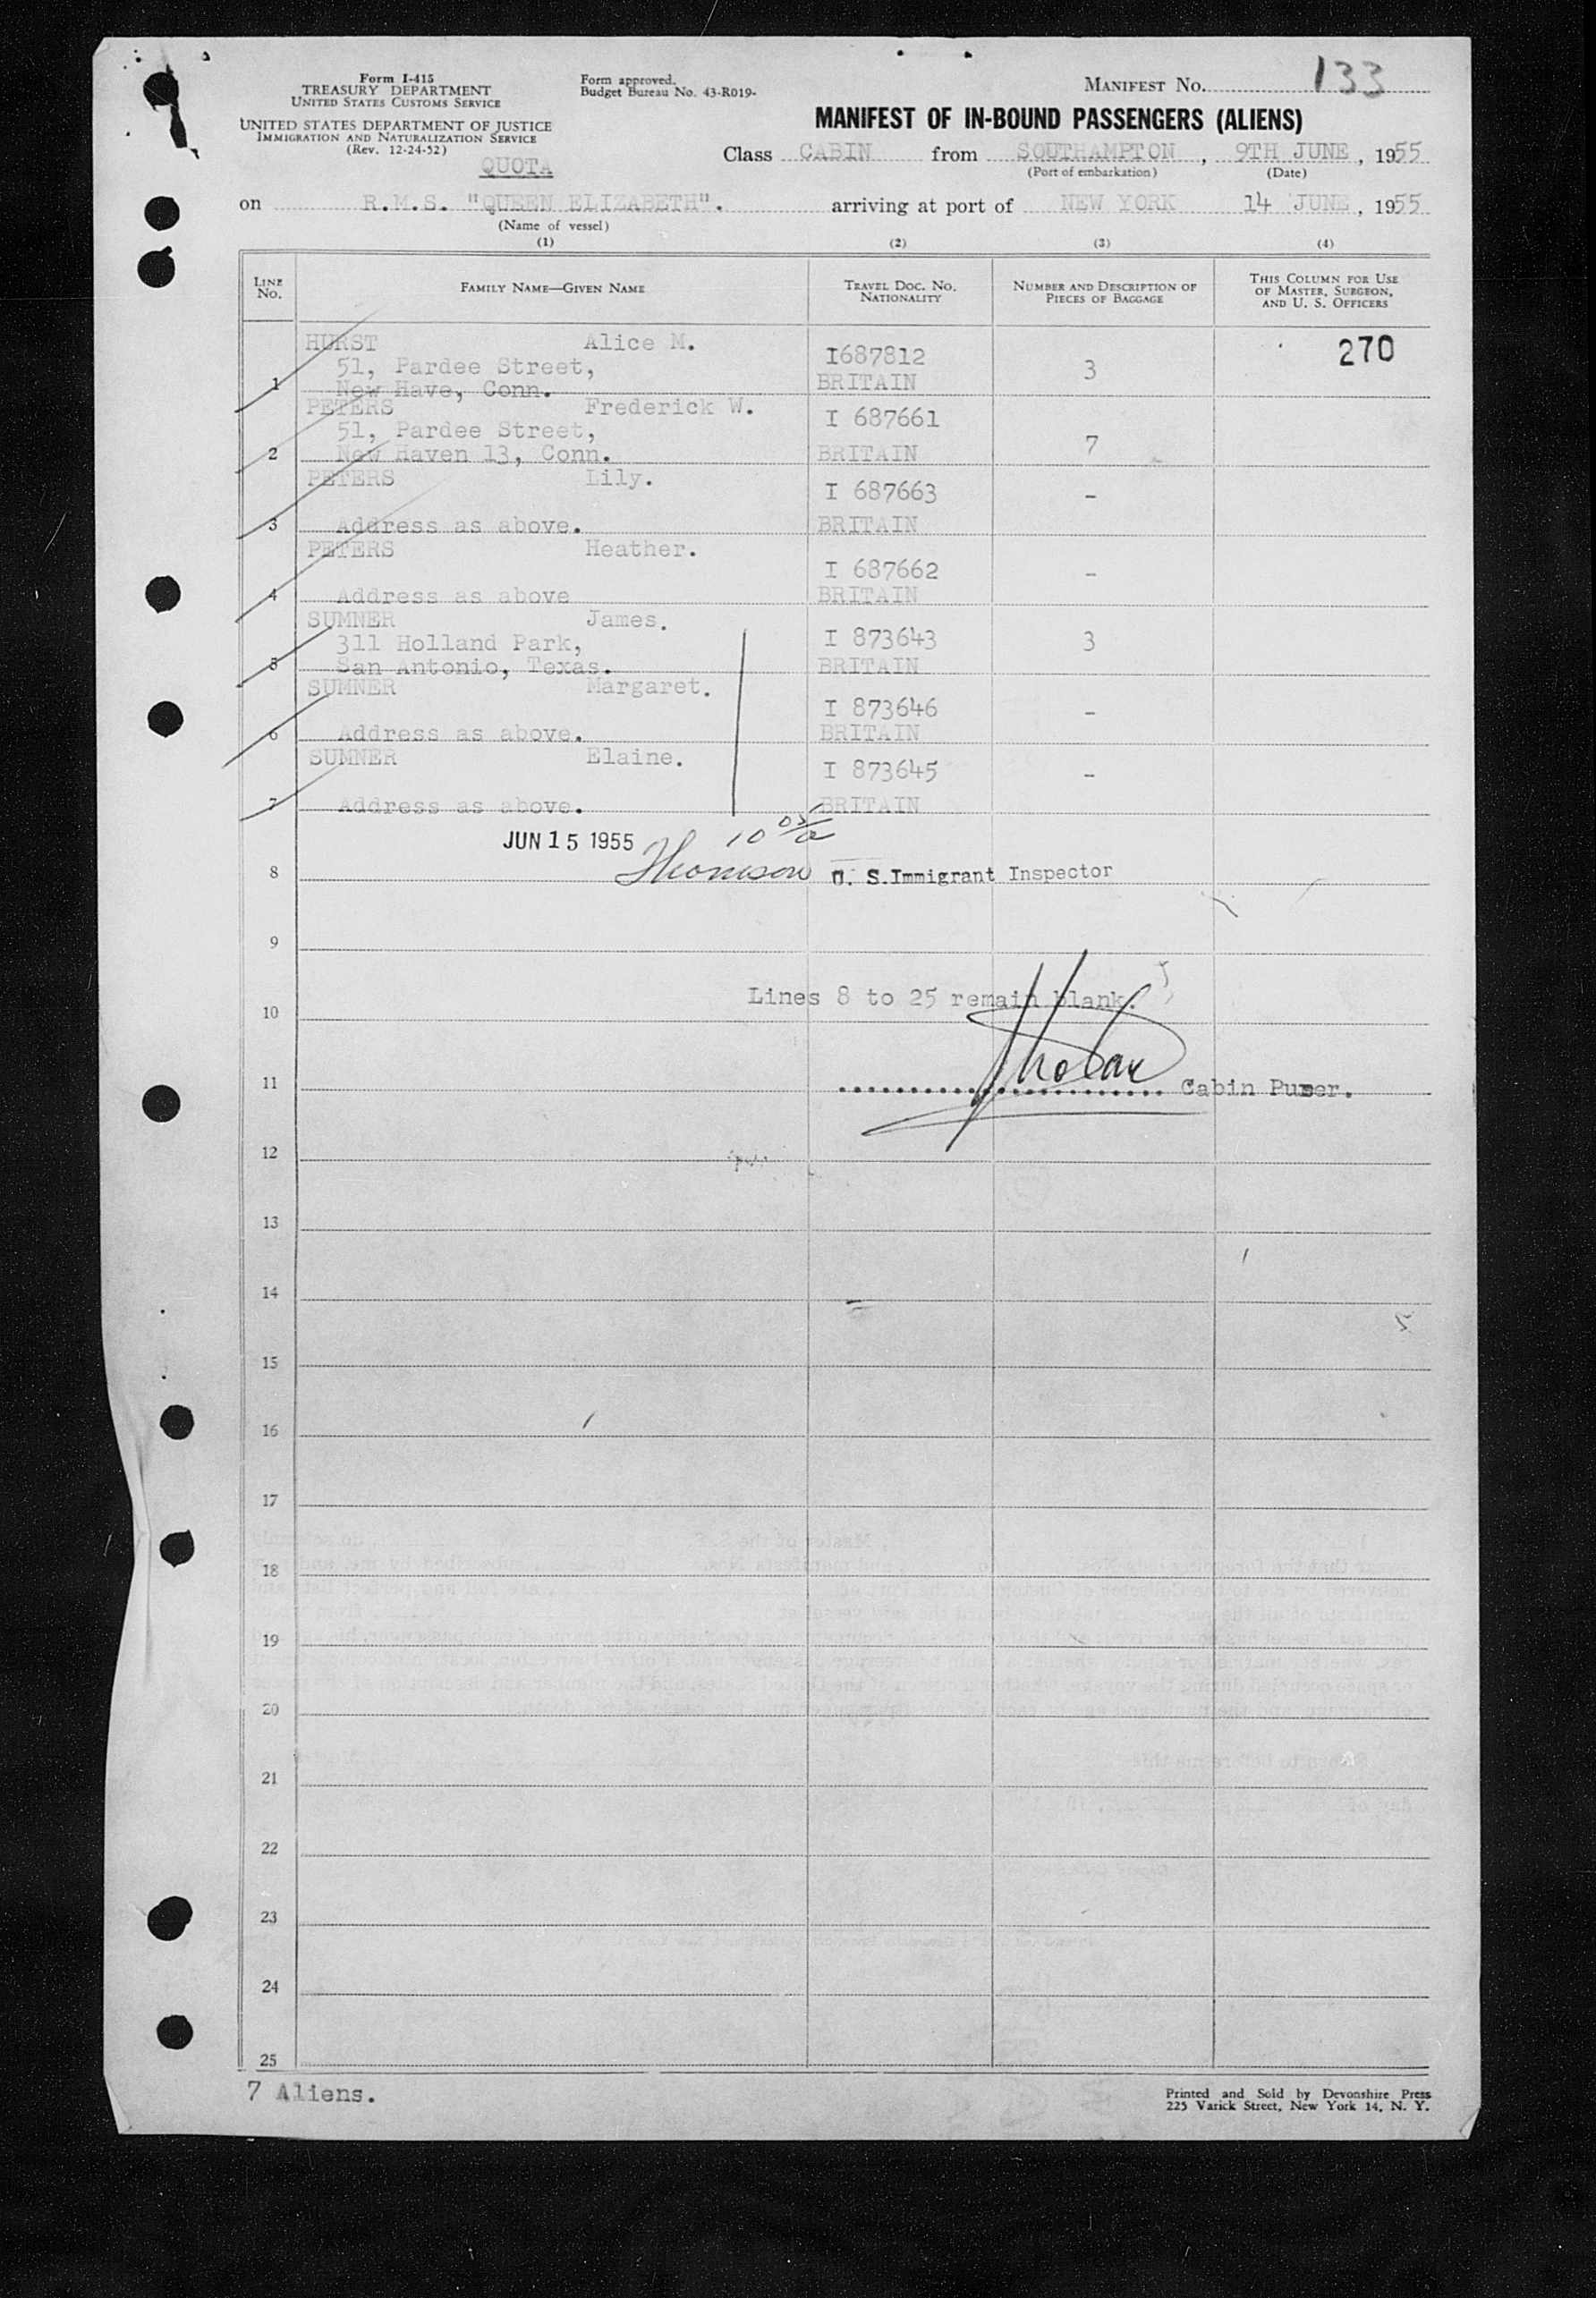 Form I-415
TREASURY DEPARTMENT
UNITED STATES CUSTOMS SERVICE
UNITED STATES DEPARTMENT OF JUSTICE
IMMIGRATION AND NATURALIZATION SERVICE
(Rev. 12-24-52)
QUOTA
Form approved.
Budget Bureau No. 43-R019-
MANIFEST No. 133
MANIFEST OF IN-BOUND PASSENGERS (ALIENS)
Class CABIN from SOUTHAMPTON, 9TH JUNE, 1955
(Port of embarkation) (Date)
on R.M.S. "QUEEN ELIZABETH". arriving at port of NEW YORK 14 JUNE, 1955
(Name of vessel)
(1) (2) (3) (4)
LINE No. FAMILY NAME—GIVEN NAME TRAVEL DOC. No. NATIONALITY NUMBER AND DESCRIPTION OF PIECES OF BAGGAGE THIS COLUMN FOR USE OF MASTER, SURGEON, AND U. S. OFFICERS
HURST Alice M. I687812 270
51, Pardee Street, 3
1 New Have, Conn. BRITAIN
PETERS Frederick W. I 687661
51, Pardee Street,
2 New Haven 13, Conn. BRITAIN 7
PETERS Lily. I 687663 -
3 Address as above. BRITAIN
PETERS Heather. I 687662 -
4 Address as above BRITAIN
SUMNER James. I 873643 3
311 Holland Park,
5 San Antonio, Texas. BRITAIN
SUMNER Margaret. I 873646 -
6 Address as above. BRITAIN
SUMNER Elaine. I 873645 -
7 Address as above. BRITAIN
JUN 15 1955
8 Thomson U. S. Immigrant Inspector
9
Lines 8 to 25 remain blank.
10
11 Cabin Purser.
12
13
14
15
16
17
18
19
20
21
22
23
24
25
7 Aliens.
Printed and Sold by Devonshire Press
225 Varick Street, New York 14, N. Y.